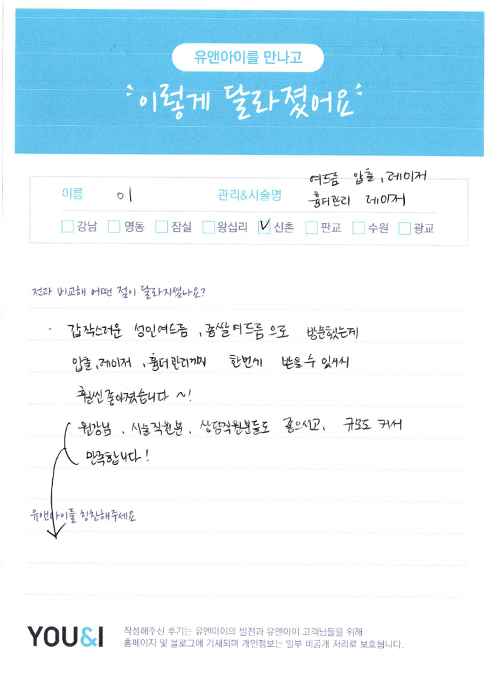 유앤아이를 만나고
이렇게 달라졌어요
이름 이 관리&시술명 여드름 압출, 레이저
흉터관리 레이저
강남 명동 잠실 왕십리 V 신촌 판교 수원 광교
전과 비교해 어떤 점이 달라지셨나요?
· 갑작스러운 성인여드름, 좁쌀여드름으로 방문했는데
압출, 레이저, 흉터관리까지 한번에 받을 수 있어서
훨씬 좋아졌습니다 ~!
원장님, 시술직원분, 상담직원분들도 좋으시고, 규모도 커서
만족합니다!
유앤아이를 칭찬해주세요
YOU&I
작성해주신 후기는 유앤아이의 발전과 유앤아이 고객님들을 위해
홈페이지 및 블로그에 기재되며 개인정보는 일부 비공개 처리로 보호됩니다.